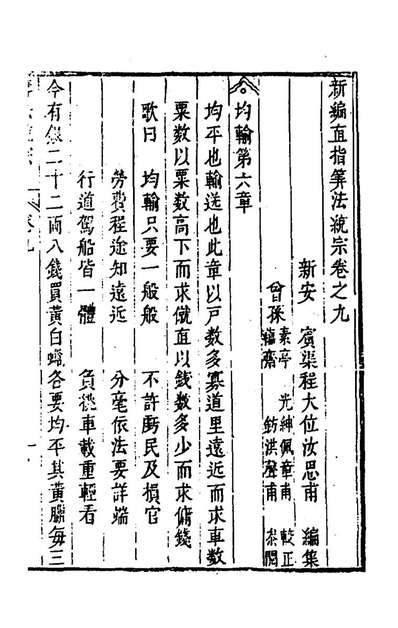 新編直指筭法統宗卷之九
新安 賓渠程大位汝思甫 編集
曾孫 素亭 光紳佩章甫 較正
蘊齋 鈁洪聲甫 叅閱
均輸第六章
均平也輸送也此章以戸數多寡道里遠近而求車數
粟數以粟數高下而求僦直以錢數多少而求傭錢
歌曰 均輸只要一般般 不許虧民及損官
勞費程途知遠近 分毫依法要詳端
行道駕船皆一體 負㧡車載重輕看
今有銀二十二兩八錢買黃白蠟各要均平其黃臘每三
卷九